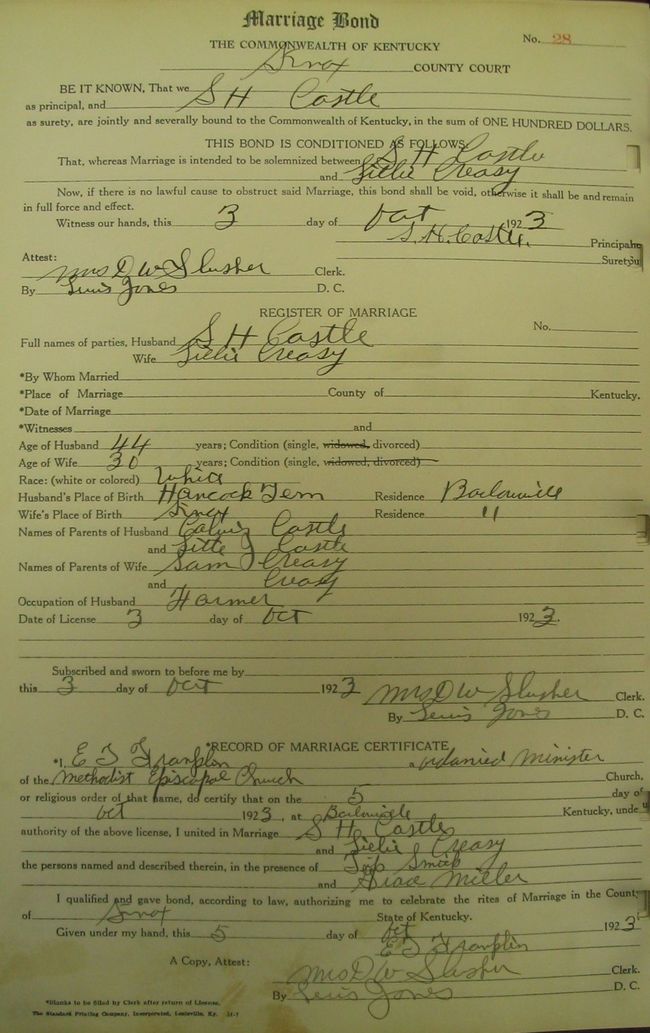 Marriage Bond
No. 28
THE COMMONWEALTH OF KENTUCKY
Knox COUNTY COURT
BE IT KNOWN, That we
as principal, and S H Castle
as surety, are jointly and severally bound to the Commonwealth of Kentucky, in the sum of ONE HUNDRED DOLLARS.
THIS BOND IS CONDITIONED AS FOLLOWS
That, whereas Marriage is intended to be solemnized between S H Castle
and Lillie Creasy
Now, if there is no lawful cause to obstruct said Marriage, this bond shall be void, otherwise it shall be and remain
in full force and effect.
Witness our hands, this 3 day of Oct 1923
S. H. Castle. Principal
Surety
Attest:
Mrs D W Slusher Clerk.
By Lewis Jones D. C.
REGISTER OF MARRIAGE
No.
Full names of parties, Husband S H Castle
Wife Lillie Creasy
*By Whom Married
*Place of Marriage County of Kentucky.
*Date of Marriage
*Witnesses and
Age of Husband 44 years; Condition (single, widowed, divorced)
Age of Wife 30 years; Condition (single, widowed, divorced)
Race: (white or colored) White
Husband's Place of Birth Hancock Tenn Residence
Wife's Place of Birth Knox Residence "
Names of Parents of Husband Calvin Castle
and Castle
Names of Parents of Wife Sam Creasy
and Creasy
Occupation of Husband Farmer
Date of License 3 day of Oct 1923.
Subscribed and sworn to before me by
this 3 day of Oct 1923 Mrs D W Slusher Clerk.
By Lewis Jones D. C.
*RECORD OF MARRIAGE CERTIFICATE
*I, E T Franklin a ordained minister
of the Methodist Episcopal Church Church,
or religious order of that name, do certify that on the 5 day of
Oct 1923, at Kentucky, unde
authority of the above license, I united in Marriage S H Castle
and Lillie Creasy
the persons named and described therein, in the presence of Smith
and Grace Miller
I qualified and gave bond, according to law, authorizing me to celebrate the rites of Marriage in the County
of Knox State of Kentucky.
Given under my hand, this 5 day of Oct 1923
E T Franklin
A Copy, Attest:
Mrs D W Slusher Clerk.
By Lewis Jones D. C.
*Blanks to be filled by Clerk after return of License.
The Standard Printing Company, Incorporated, Louisville, Ky.